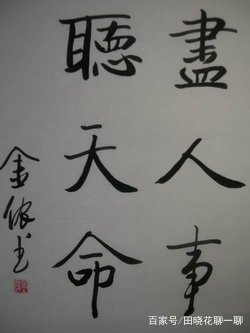 盡人事
聽天命
金儂書
百家号/田晓花聊一聊